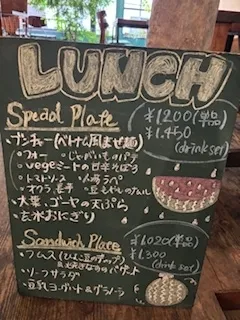 LUNCH
Special Plate
¥1200(単品)
¥1,450
(drink set)
・ブンチャー(ベトナム風まぜ麺)
・フォー ・じゃがいものパテ
・vegeミートの甘辛そぼろ
・トマトソース
・大葉、ゴーヤの天ぷら
・玄米おにぎり
Sandwich Plate
¥1,020(単品)
¥1,300
(drink set)
・フムス(ひよこ豆のディップ)
・リーフサラダ
・豆乳ヨーグルト&グラノーラ